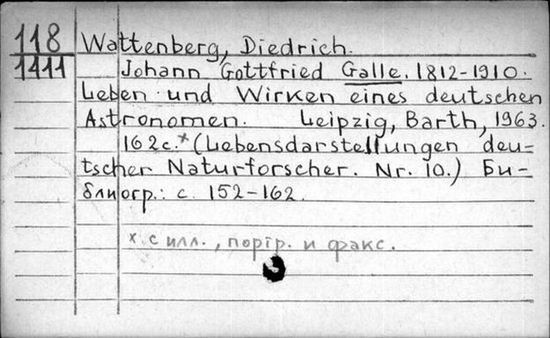 118 Wattenberg, Diedrich.
1411 Johann Gottfried Galle. 1812-1910.
Leben und Wirken eines deutschen
Astronomen. Leipzig, Barth, 1963.
162с.* (Lebensdarstellungen deu-
tscher Naturforscher. Nr. 10.) Би-
блиогр.: с. 152-162.
х. с илл., портр. и факс.